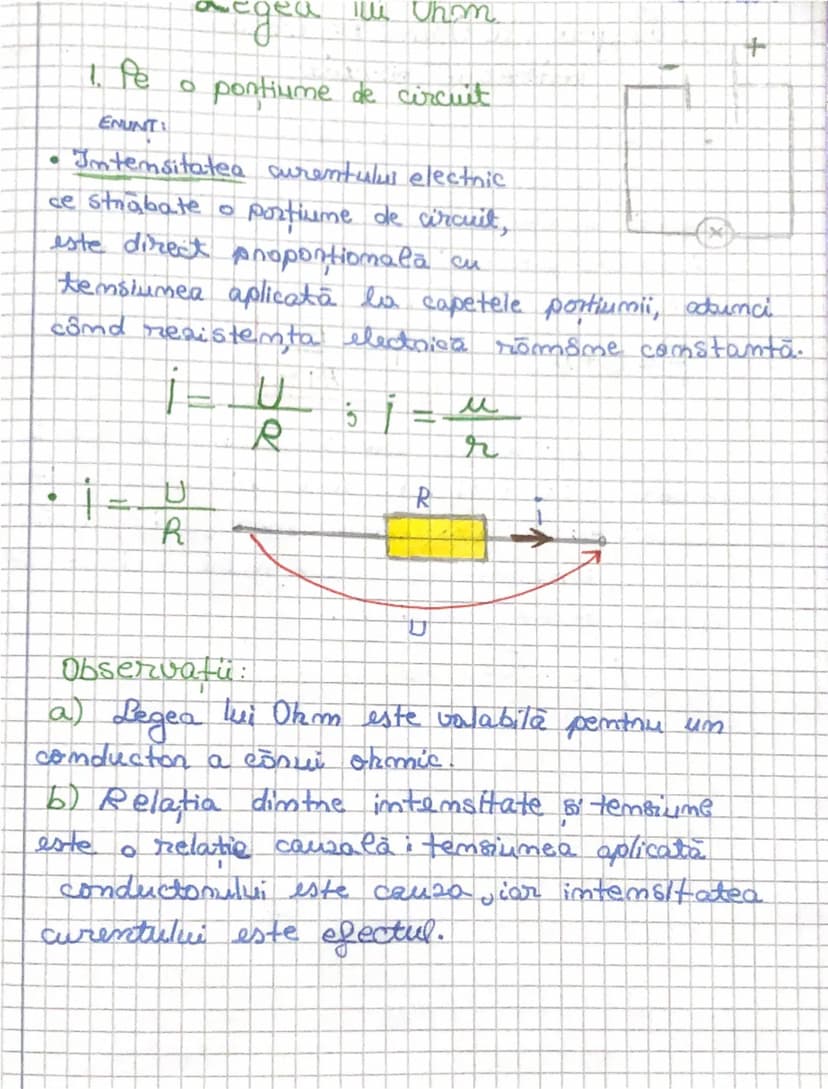 Legea lui Ohm
1. Pe o porțiume de circuit
ENUNȚ:
• Intensitatea curentului electric
ce străbate o porțiune de circuit,
este direct proporțională cu
tensiunea aplicată la capetele porțiunii, atunci
când rezistența electrică rămâne constantă.
i = U/R ; i = u/r
• i = U/R
R
i
U
Observații:
a) Legea lui Ohm este valabilă pentru un
conductor a cărui ohmic.
b) Relația dintre intensitate și tensiune
este o relație cauzală: tensiunea aplicată
conductorului este cauza, iar intensitatea
curentului este efectul.
- +